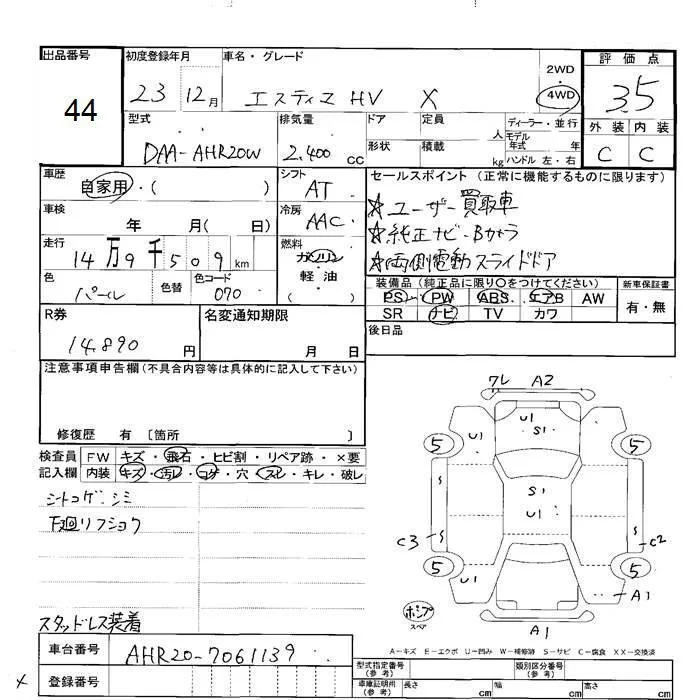 出品番号 初度登録年月 車名・グレード 評価点
44 23 12月 エスティマ HV X 2WD 4WD 3.5
型式 排気量 ドア 定員 ディーラー・並行 外装 内装
人 モデル年式 年
DAA-AHR20W 2.400 cc 形状 積載 kg ハンドル 左・右 C C
車歴 シフト セールスポイント(正常に機能するものに限ります)
自家用・( ) AT ☆ユーザー買取車
車検 冷房
年 月( 日) AAC ☆純正ナビ・Bカメラ
走行 燃料
14万9千509km ガソリン ☆両側電動スライドドア
軽油
( )
色 色替 色コード 装備品(純正品に限り○をつけてください) 新車保証書
パール 070 PS PW ABS エアB AW 有・無
SR ナビ TV カワ
R券 名変通知期限 後日品
14,890円 月 日
注意事項申告欄(不具合内容等は具体的に記入して下さい)
修復歴 有 〔箇所 〕
検査員 FW キズ・飛石・ヒビ割・リペア跡・×要
記入欄 内装 キズ・汚レ・コゲ・穴・スレ・キレ・破レ
シートコゲ・シミ
下廻リフショク
スタッドレス装着
ワレ A2
U1 U1 S1
5 5
S1
U1
C3 S S C2
5 5
U1 A1
ポンプ
スペア
A1
A-キズ E-エクボ U-凹み W-補修跡 S-サビ C-腐食 XX-交換済
車台番号 AHR20-7061139
型式指定番号(参考) 類別区分番号(参考)
× 登録番号
車庫証明用(参考) 長さ cm 幅 cm 高さ cm